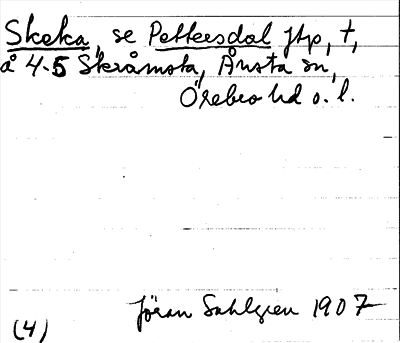 Skeka, se Pettersdal jtp, †,
å 4-5 Skråmsta, Ånsta sn,
Örebro hd o. l.
Jöran Sahlgren 1907
(4)